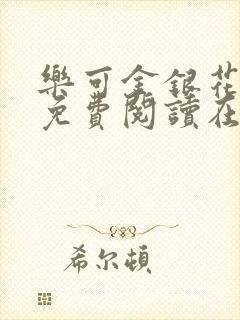 樂可金銀花
免費閱讀在
希尔頓